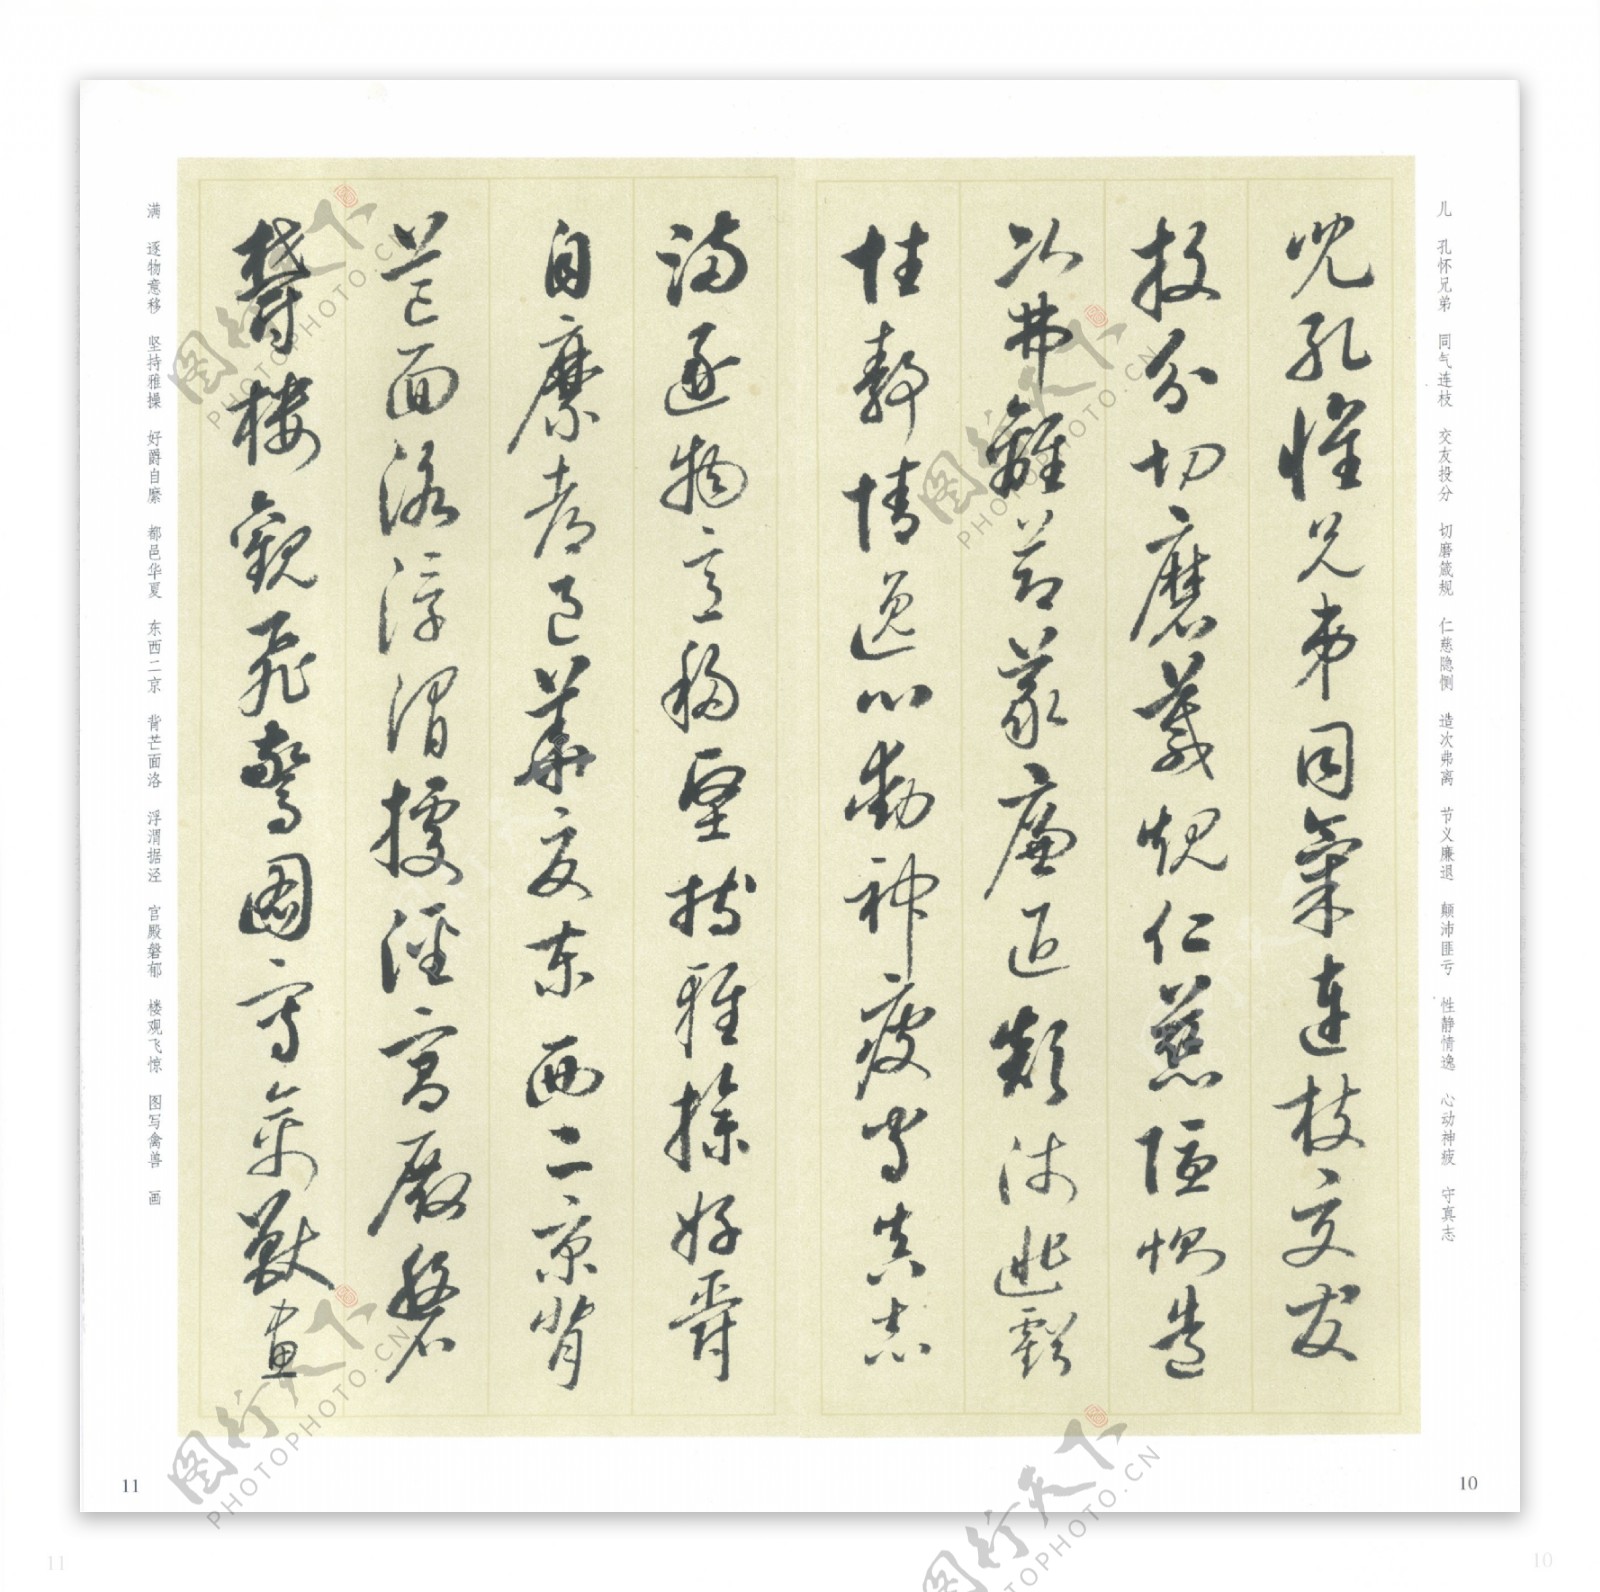 儿 孔怀兄弟 同气连枝 交友投分 切磨箴规 仁慈隐恻 造次弗离 节义廉退 颠沛匪亏 性静情逸 心动神疲 守真志
兒孔懷兄弟同氣連枝交友
投分切磨箴規仁慈隱惻造
次弗離節義廉退顛沛匪虧
性靜情逸心動神疲守真志
10
滿逐物意移堅持雅操好爵
自縻都邑華夏東西二京背
芒面洛浮渭據涇宮殿磐
鬱樓觀飛驚圖寫禽獸畫
满 逐物意移 坚持雅操 好爵自縻 都邑华夏 东西二京 背芒面洛 浮渭据泾 宫殿磐郁 楼观飞惊 图写禽兽 画
11
图行天下
PHOTOPHOTO.CN
图行天下
PHOTOPHOTO.CN
图行天下
PHOTOPHOTO.CN
图行天下
PHOTOPHOTO.CN
11
10